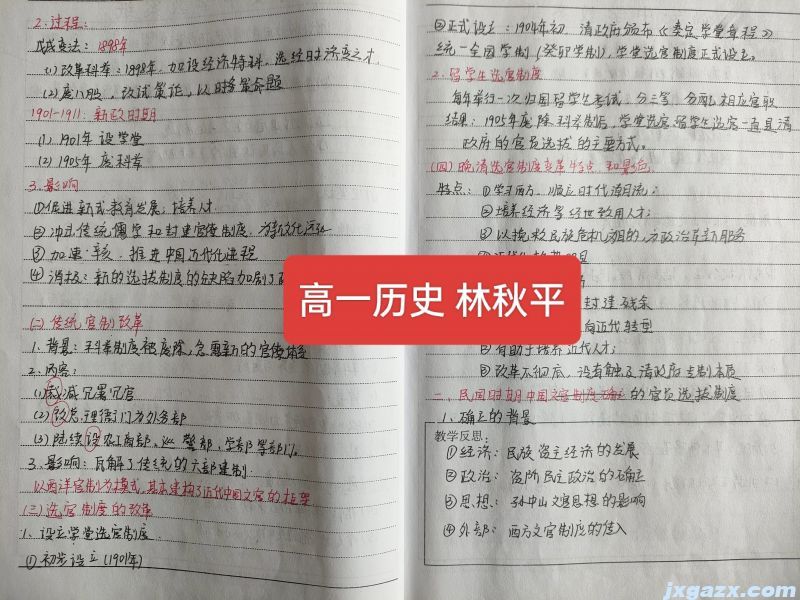 2. 过程:
戊戌变法: 1898年
(1) 改革科举: 1898年, 加设经济特科, 选经时济变之才.
(2) 废八股, 改试策论, 以时务策命题
1901-1911: 新政时期
(1) 1901年 设学堂
(2) 1905年 废科举
3. 影响
①促进新式教育发展; 培养人才
②冲击传统儒学和封建官僚制度.
③加速·辛亥·推进中国近代化进程
④消极: 新的选拔制度的缺陷加剧了
(二) 传统官制改革
1. 背景: 科举制度被废除, 急需新的官僚体系
2. 内容:
(1) 裁减冗署冗官
(2) 改总理衙门为外务部
(3) 陆续设农工商部、巡警部、学部等部门.
3. 影响: 瓦解了传统的六部建制.
以西洋官制为模式, 基本建构了近代中国文官的框架
(三) 选官制度的改革
1. 设立学堂选官制度.
① 初步设立 (1901年)
②正式设立: 1904年初, 清政府颁布《奏定学堂章程》
统一全国学制 (癸卯学制), 学堂选官制度正式设立。
2. 留学生选官制度
每年举行一次归国留学生考试, 分三等, 分配相应官职
结果: 1905年废除科举制后, 学堂选官留学生选官一直是清
政府的官员选拔的主要方式。
(四) 晚清选官制度变革特点和影响
特点: ①学习西方, 顺应时代潮流;
②培养经济学经世致用人才;
③以挽救民族危机为目的, 为政治革新服务
高一历史 林秋平
封建残余
向近代转型
③有助于培养近代人才;
④改革不彻底, 没有触及清政府专制本质
一、民国时期中国文官制度确立的官员选拔制度
1. 确立的背景
教学反思:
①经济: 民族资主经济的发展
②政治: 资阶民主政治的确立
③思想: 孙中山文官思想的影响
④外部: 西方文官制度的传入
jxgazx.com